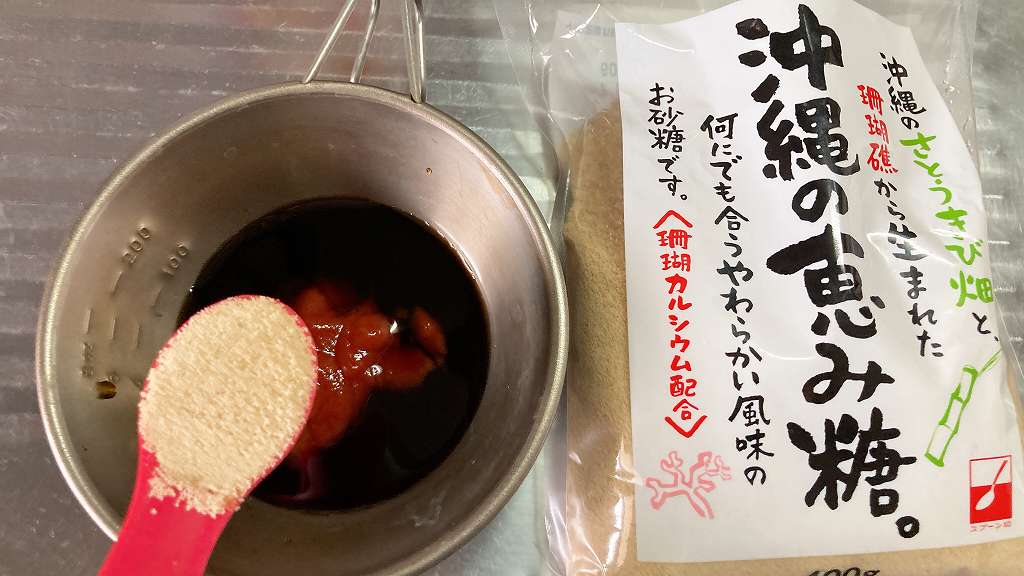 沖縄のさとうきび畑と、
珊瑚礁から生まれた
沖縄の恵み糖。
何にでも合うやわらかい風味の
お砂糖です。
〈珊瑚カルシウム配合〉
スプーン印
400g
200
100